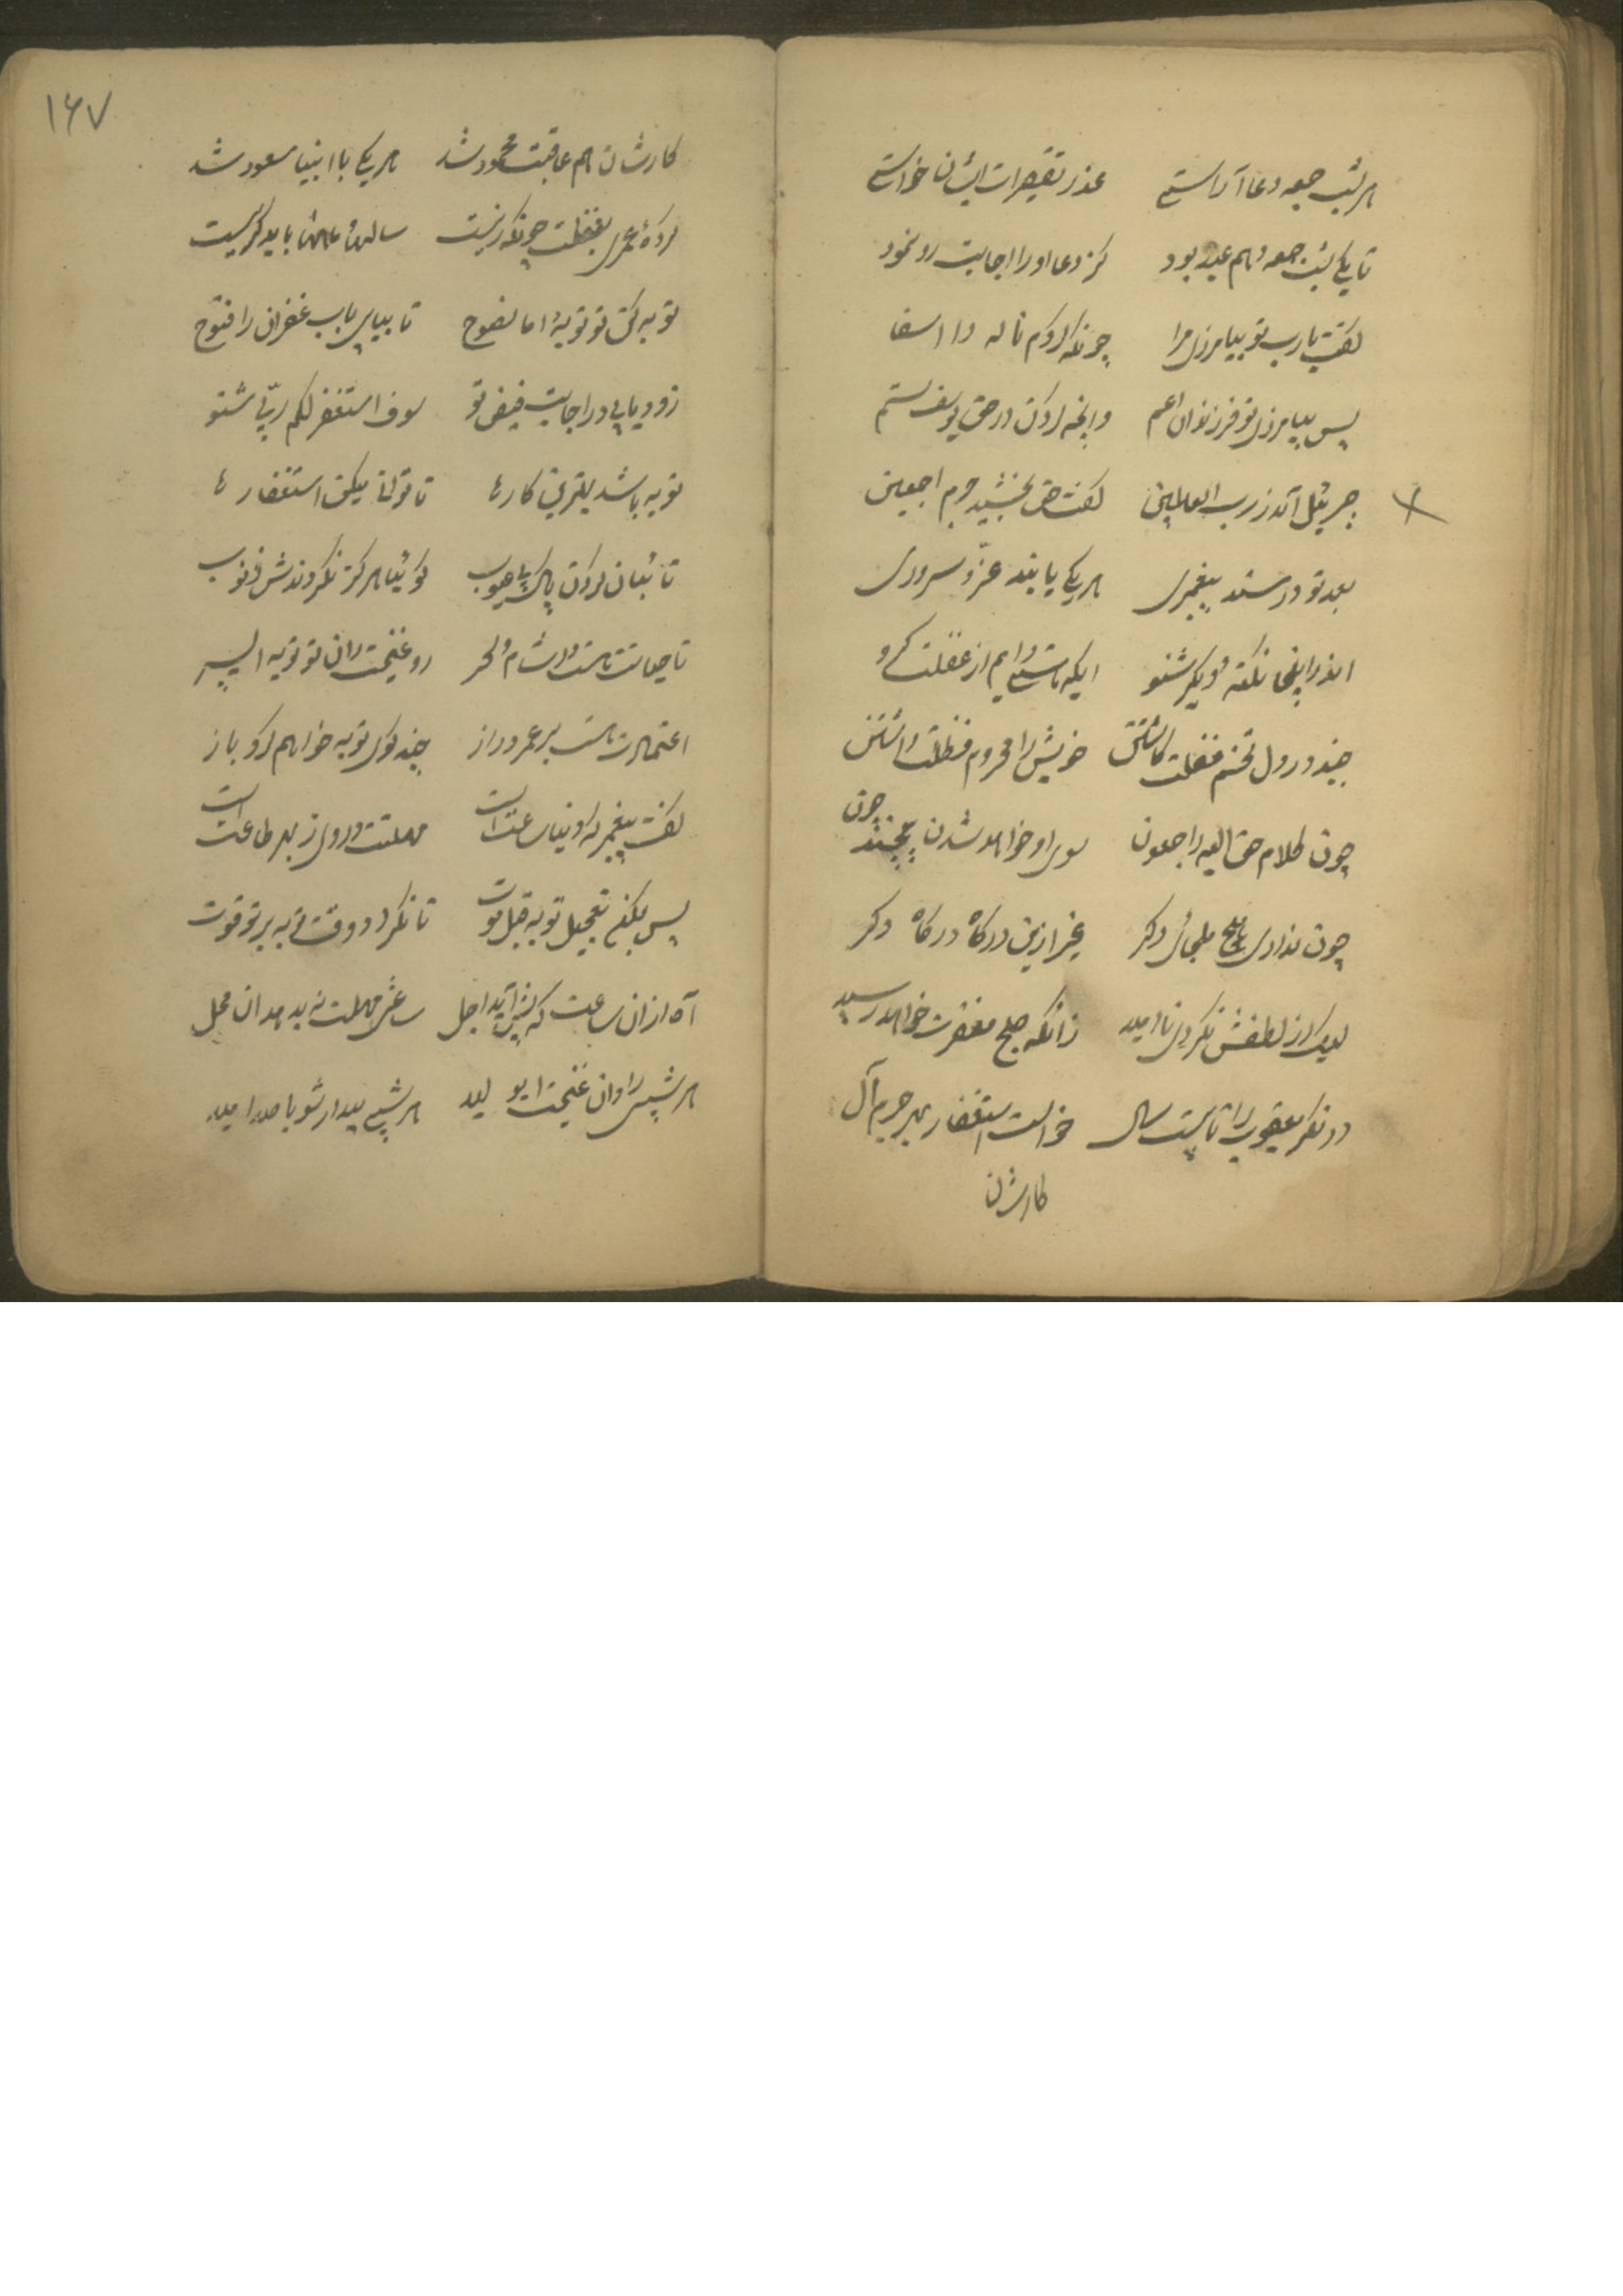 هر شب جمعه دعا آراستی عذر تقصیرات ایشان خواستی
تا یکی شب جمعه و هم عید بود کز دعا او را اجابت رو نمود
گفت یا رب تو بیامرزی مرا چونکه کردم ناله وا اسفا
پس بیامرزی تو فرزندان عم وانچه کردن در حق یوسف ستم
جبرئیل آمد ز رب العالمین گفت حق بخشید جرم اجمعین
بعد تو درسند پیغمبری هر یکی یابند عز و سروری
اندر اینجا نکته دیگر شنو ایکه هستی دایم از غفلت گرو
چند در دل تخم غفلت کاشتن خویش را محروم داشتن
چون کلام حق الیه راجعون سوی او خواهد شدن چون
چون نداری هیچ ملجای دگر غیر ازین درگاه درگاه دگر
لیک از لطفش نگردی ناامید زانکه صبح مغفرت خواهد رسید
در نگر یعقوب را تا بیست سال خواست استغفار بهر جرم آل
کارشان
۱۶۷
کارشان هم عاقبت محمود شد هر یکی با انبیا مسعود شد
کردهٔ عمری بغفلت چونکه زیست سالها باید گریست
توبه کن تو توبهٔ اما نصوح تا بیابی باب غفران را فتوح
زود یابی در اجابت فیض تو سوف استغفر لکم ربی شنو
توبه باشد بهترین کارها تا توانی میکن استغفارها
تائبان کردن پاک عیوب گوئیا هرگز نکردندش ذنوب
تا حیاتت هست در شام و سحر رو غنیمت دان تو توبه ای پسر
اعتمادت هست بر عمر دراز چند گوی توبه خواهم کرد باز
گفت پیغمبر که دنیا ساعت است مهلتت در وی ز بهر طاعت است
پس بکن تعجیل توبه قبل موت تا نگردد وقت توبه بر تو فوت
آه ازان ساعت که پیش آید اجل ساعتی مهلت نیابد اندران محل
هر شبی را دان غنیمت هر شبی بیدار شو با صد امید